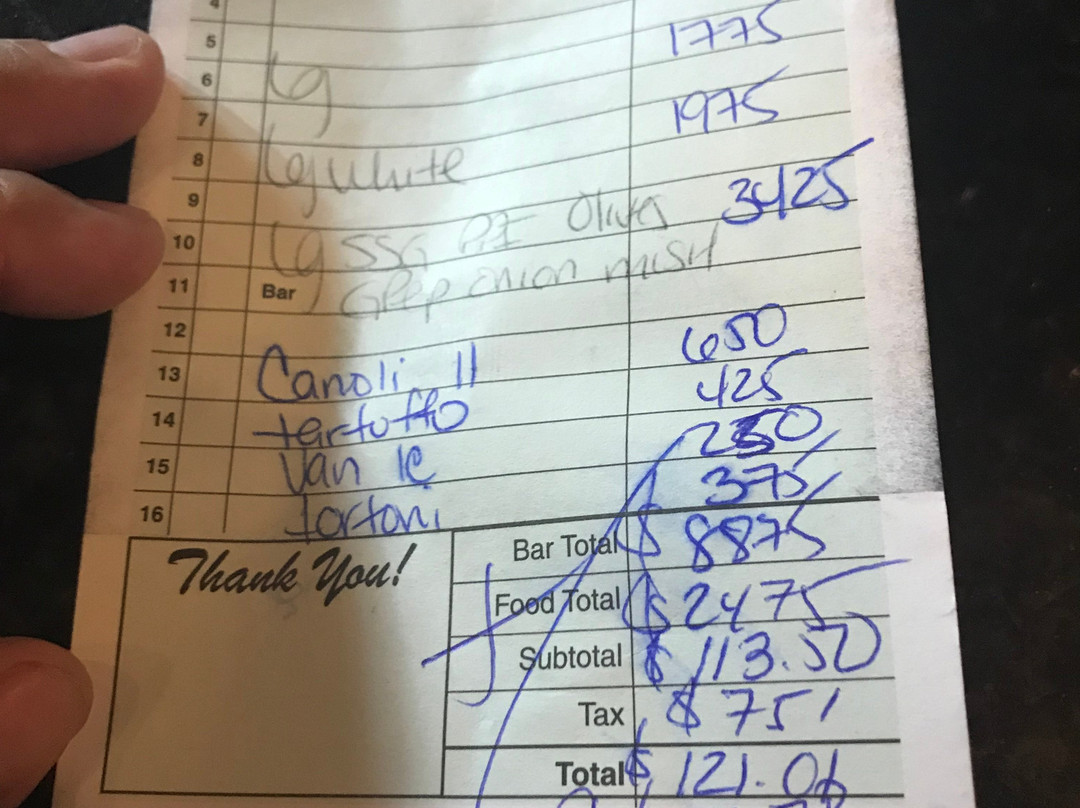 4
5 1775
6 lg
7 1975
8 lg white
9 3425
10 lg SSG Olives
11 Bar GPep onion mush
12 650
13 Canoli 11 425
14 tartuffo 250
15 Van 375
16 tortoni
Thank You!
Bar Total $ 8875
Food Total $ 2475
Subtotal $ 113.50
Tax $ 751
Total $ 121.06